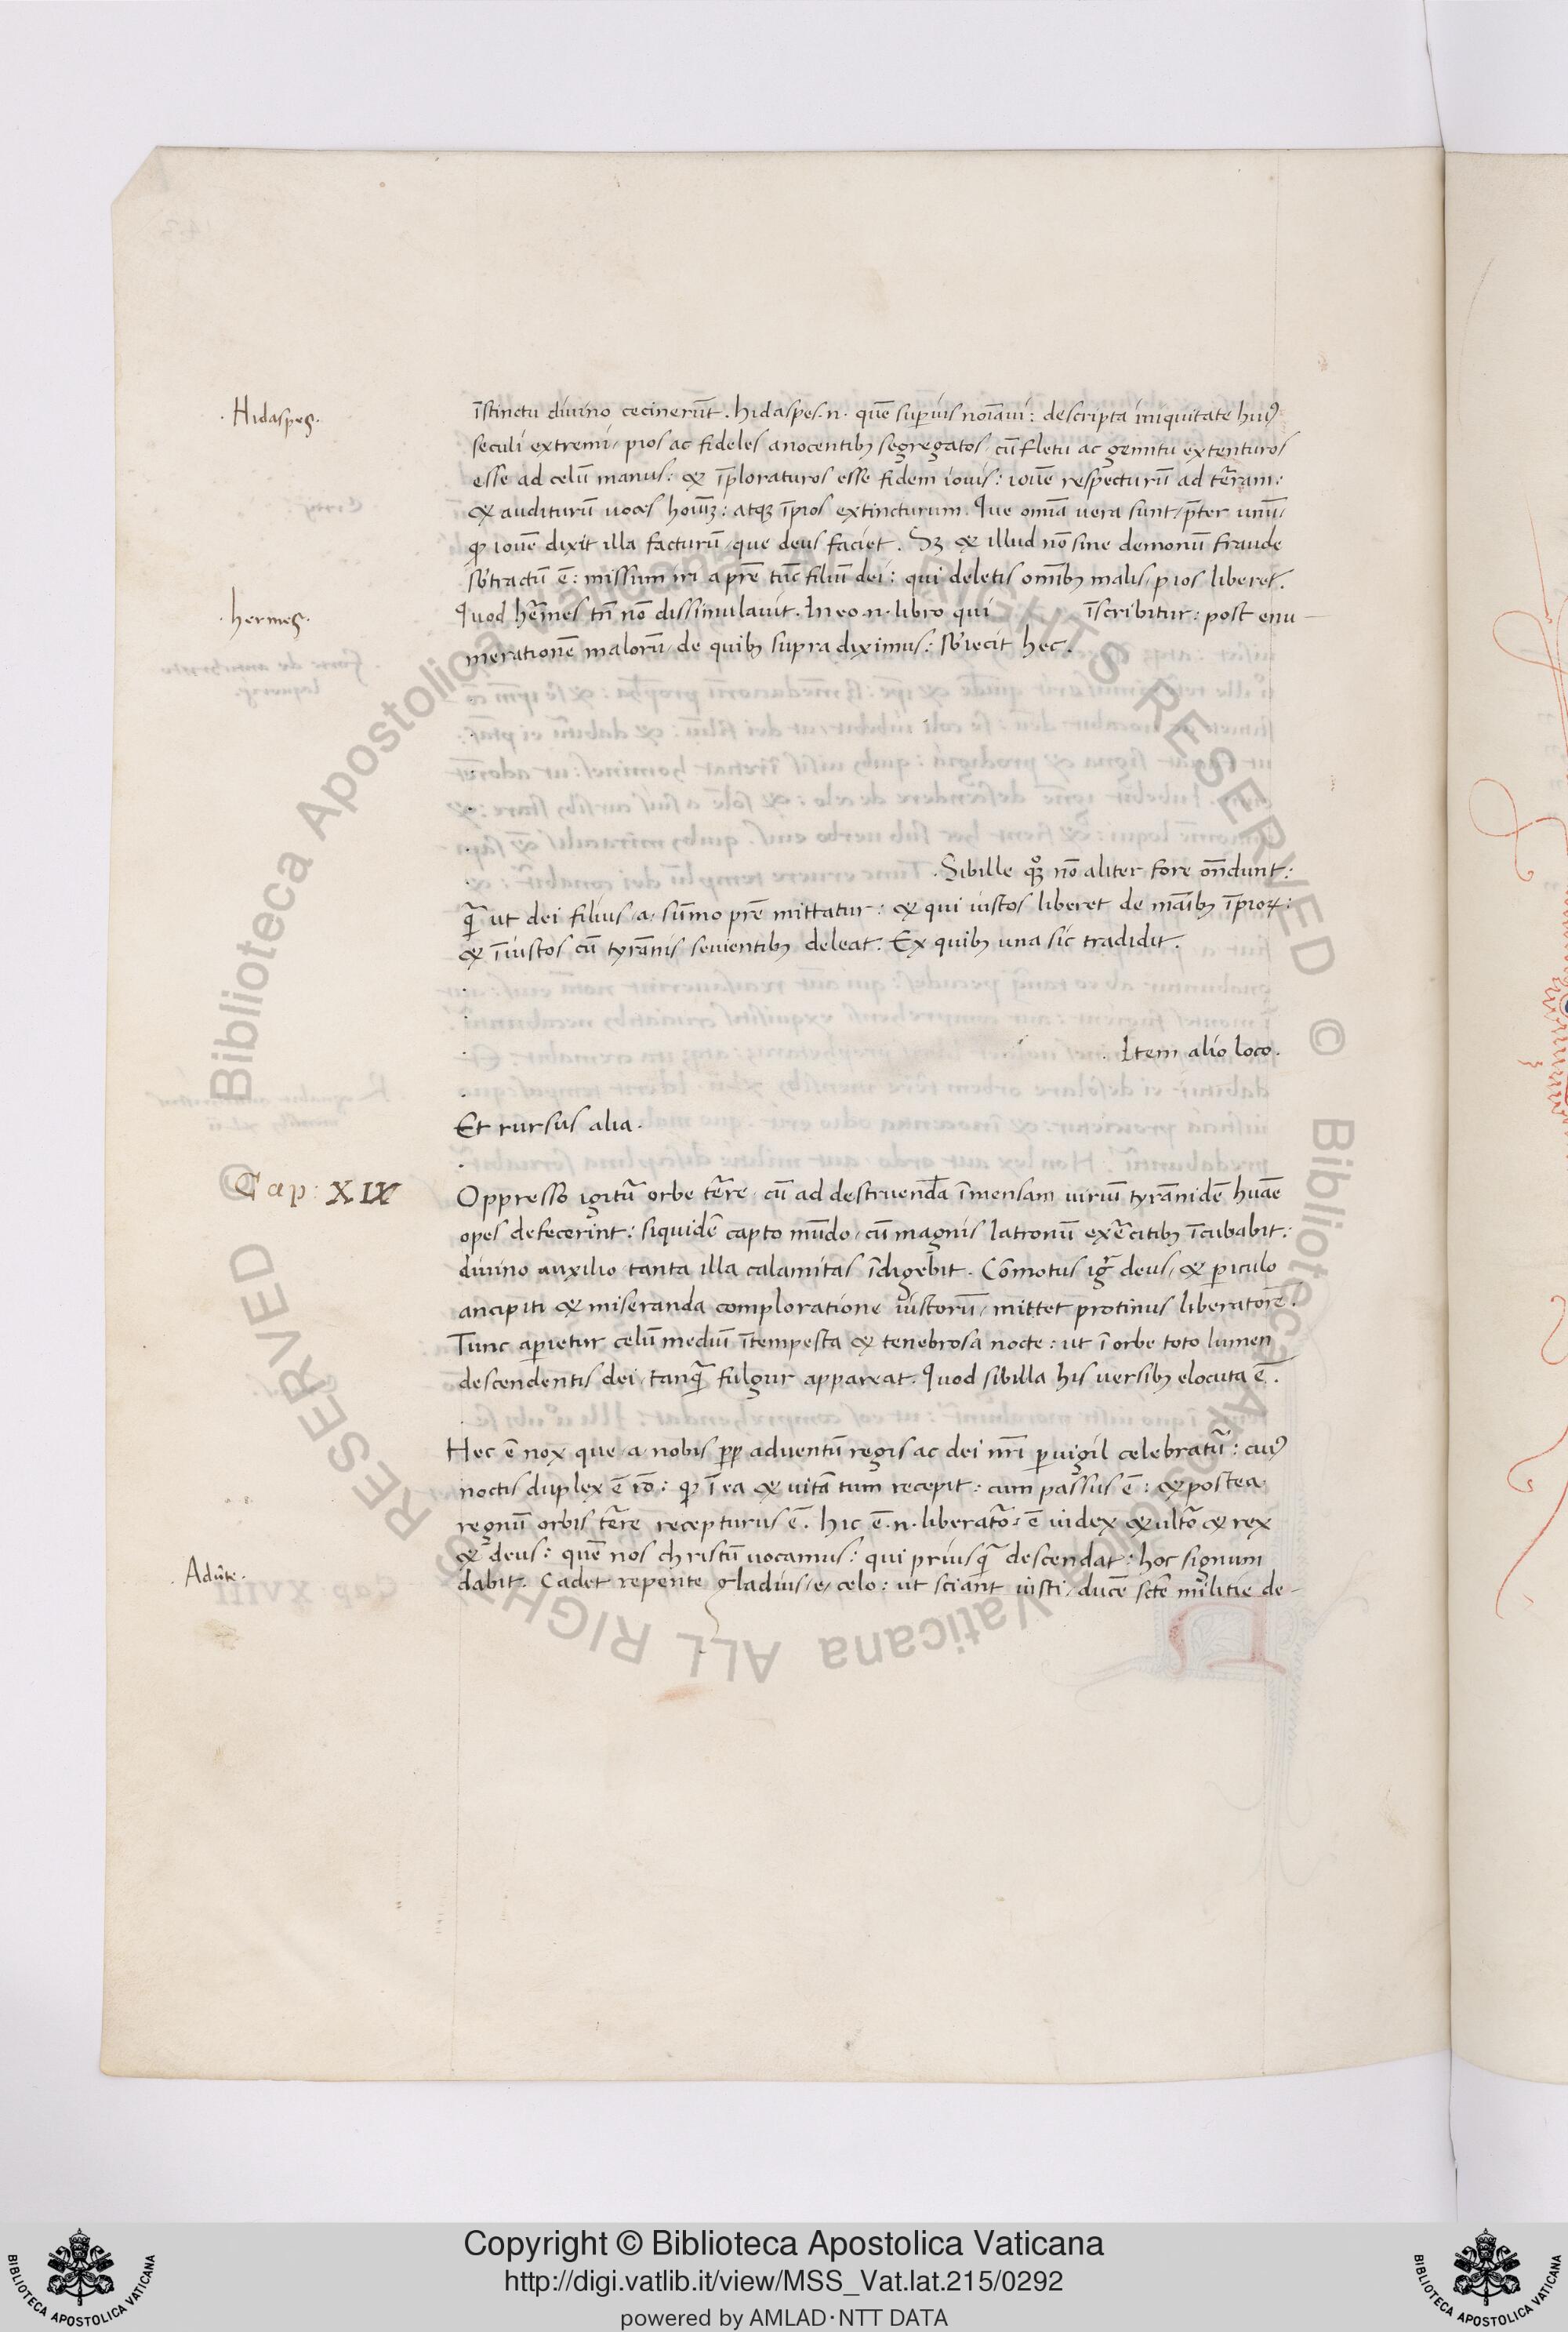 · Hidaspes ·
īstinctu divino cecinerūt. hidaspes .n. quē superius noīavi: descripta iniquitate huiꝰ
seculi extremi, pios ac fideles a nocentibꝫ segregatos, cū fletu ac gemitu extenturos
esse ad celū manus: & īploraturos esse fidem iovis: iovē respecturū ad tērram:
& auditurū voces hoīūꝫ: atqꝫ īpios extincturum. Que omīa vera sunt, p̄ter unū,
qp iovē dixit illa facturū, que deus faciet. Sꝫ & illud nō sine demonū fraude
sb̄tractū ē: missum iri a prē tūc filiū dei: qui deletis omībꝫ malis, pios liberet.
· hermes ·
Quod hērmes tn̄ nō dissimulavit. In eo .n. libro qui īscribitur: post enu-
merationē malorū, de quibꝫ supra diximus: sb̄iecit hec.
. Sibille qꝫ nō aliter fore on̄dunt:
qā ut dei filius ,a, sūmo prē mittatur: & qui iustos liberet de maībꝫ īpioꝝ:
& īiustos cū tyrānis sevientibꝫ deleat. Ex quibꝫ una sic tradidit.
. Item alio loco.
Et rursus alia.
Cap: XIX
Oppresso igitū orbe tērre, cū ad destruendā īmensam virium tyrānidē huāe
opes defecerint: siquidē capto mūdo, cū magnis latronū exērcitibꝫ īcubabit:
divino auxilio tanta illa calamitas īdigebit. Cōmotus igr̄ deus, & periculo
ancipiti & miseranda comploratione iustorū, mittet protinus liberatorē.
Tunc aperietur celū mediū ītempesta & tenebrosa nocte: ut ī orbe toto lumen
descendentis dei, tanqā fulgur appareat. Quod sibilla his versibꝫ elocuta ē.
Hec ē nox que ,a, nobis pp adventū regis ac dei nr̄i pervigil celebratū: cuiꝰ
noctis duplex ē rō: qp ī ea & vitā tum recepit: cum passus ē: & postea
regnū orbis tērre recepturus ē. hic ē .n. liberatō: ē iudex & ultō & rex
& deus: quē nos christū vocamus: qui priusqā descendat: hoc signum
· Adv̄te ·
dabit. Cadet repente gladius ,e, celo: ut sciānt iusti, ducē sctē militie de-
Copyright © Biblioteca Apostolica Vaticana
http://digi.vatlib.it/view/MSS_Vat.lat.215/0292
powered by AMLAD·NTT DATA
BIBLIOTECA APOSTOLICA VATICANA
BIBLIOTECA APOSTOLICA VATICANA
© Biblioteca Apostolica Vaticana ALL RIGHTS RESERVED © Biblioteca Apostolica Vaticana ALL RIGHTS RESERVED